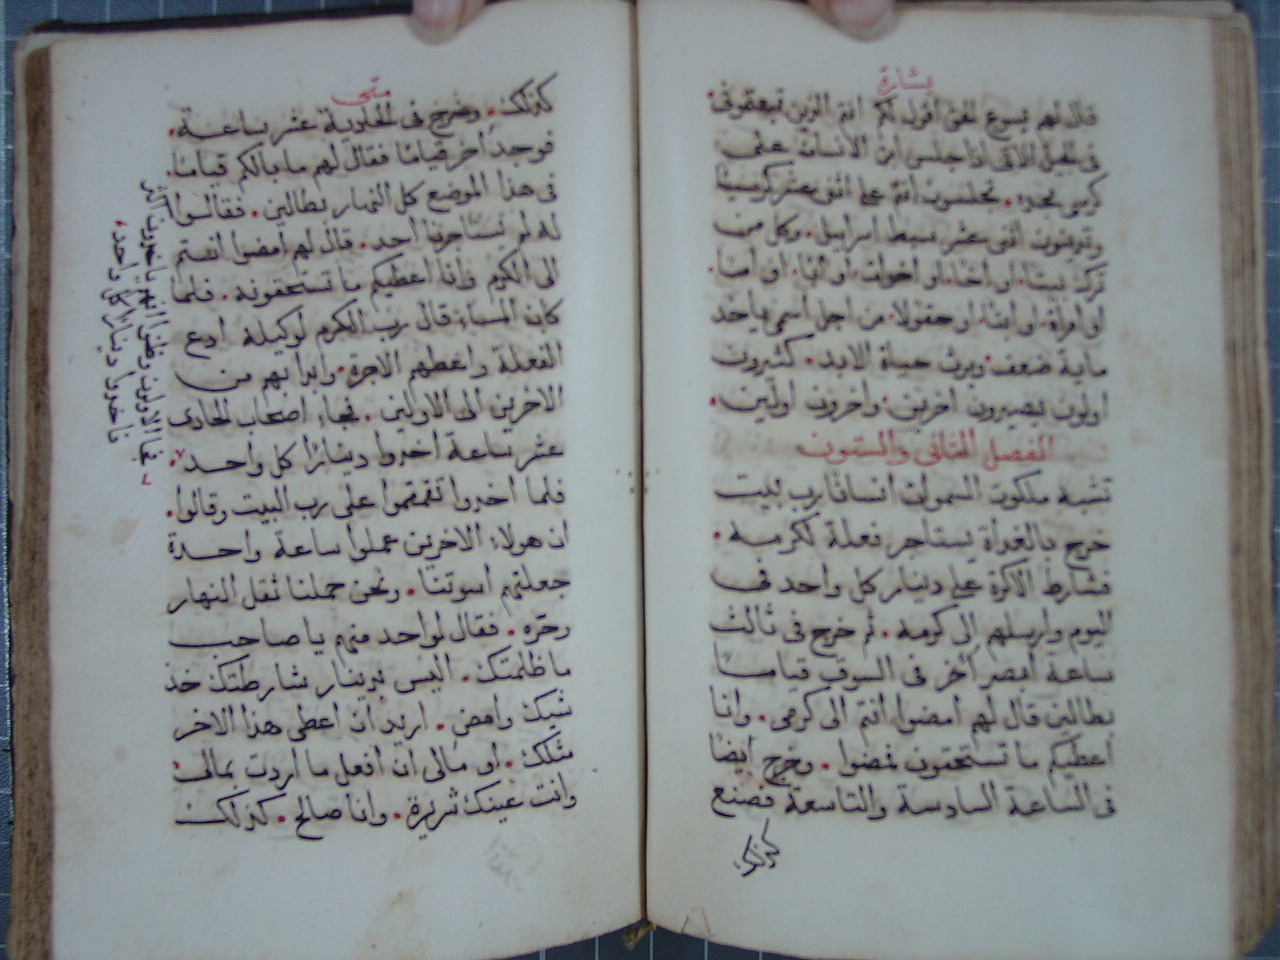 بشارة
قال لهم يسوع الحق اقول لكم انتم الذين تبعتمونى
فى الجيل الاتى اذا جلس ابن الانسان على
كرسى مجده. تجلسون انتم على اثنى عشر كرسيا
وتدينون اثنى عشر سبط اسراييل. وكل من
ترك بيتا. او اخا. او اخوات. او ابا. او اما.
او امراة. او ابنا. او حقولا. من اجل اسمى ياخد
ماية ضعف. ويرث حياة الابد. كثيرون
اولون يصيرون اخرين. واخرون اولين.
الفصل الثانى والستون
تشبه ملكوت السموات انسانا رب بيت
خرج بالغداة يستاجر فعلة لكرمه.
فشارط الاكرة على دينار كل واحد فى
اليوم وارسلهم الى كرمه. ثم خرج فى ثالث
ساعة ابصر اخر فى السوق قياما
بطالين قال لهم امضوا انتم الى كرمى. وانا
اعطيكم ما تستحقون فمضوا. وخرج ايضا
فى الساعة السادسة والتاسعة فصنع
كذلك
متى
كذلك. وخرج فى الحادية عشر ساعة.
فوجد اخر قياما فقال لهم ما بالكم قياما.
فى هذا الموضع كل النهار بطالين. فقالوا
له لم يستاجرنا احد. قال لهم امضوا انتم
الى الكرم وانا اعطيكم ما تستحقونه. فلما
كان المساء قال رب الكرم لوكيله ادع
الفعلة واعطهم الاجرة. وابدا بهم من
الاخرين الى الاولين. فجاء اصحاب الحادى
عشر ساعة اخدوا دينارا كل واحد.
فلما اخدوا تقمقموا على رب البيت وقالوا.
ان هولاء الاخرين عملوا ساعة واحدة
جعلتهم اسوتنا. ونحن حملنا ثقل النهار
وحره. فقال لواحد منهم يا صاحب
ما ظلمتك. اليس بدينار شارطتك خذ
شيك وامض. اريد ان اعطى هذا الاخر
مثلك. او مالى ان افعل ما اردت بمالى
وانت عينك شريرة. وانا صالح. كذلك
فجا الاولون وظنوا انهم ياخدون اكثر
فاخدوا دينار كل واحد.